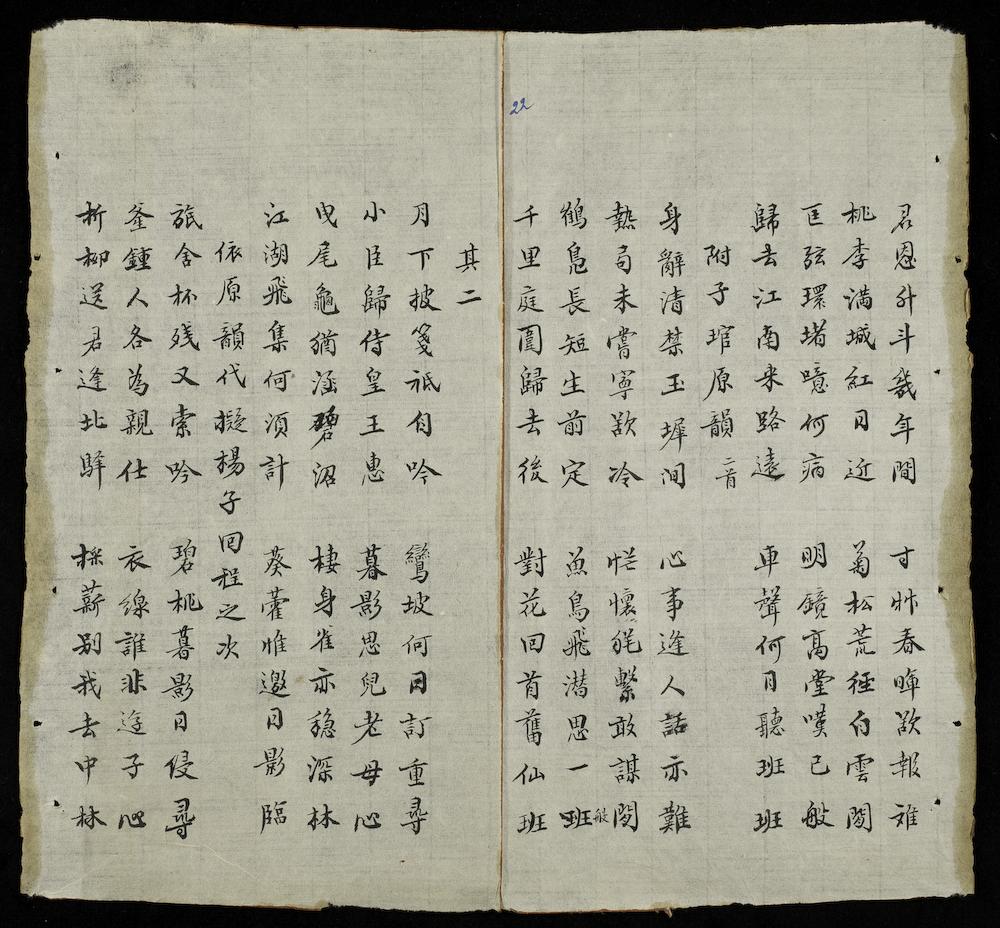 22
君恩升斗幾年間 寸艸春暉欲報难
桃李满城紅日近 菊松荒徑白雲閑
匡弦環堵噫何病 明鏡高堂嘆已般
歸去江南来路遠 車聲何日聽班班
附子琯原韻二首
身辭清禁玉墀间 心事逢人話亦難
熱局未嘗寧欲冷 忙懷旄繫敢謀閑
鶴鳬長短生前定 魚鳥飛潜思一班般
千里庭闈歸去後 對花回首舊仙班
其二
月下披箋祗自吟 鸞坡何日訂重尋
小臣歸侍皇王惠 暮影思兒老母心
曳尾龜猶涵碧沼 棲身隹亦穏深林
江湖飛集何須計 葵藿惟邀日影臨
依原韻代擬楊子回程之次
旅舍杯残又索吟 碧桃暮影日侵尋
釜鍾人各為親仕 衣線誰非逰子心
折柳送君逢北驛 採薪别我去中林